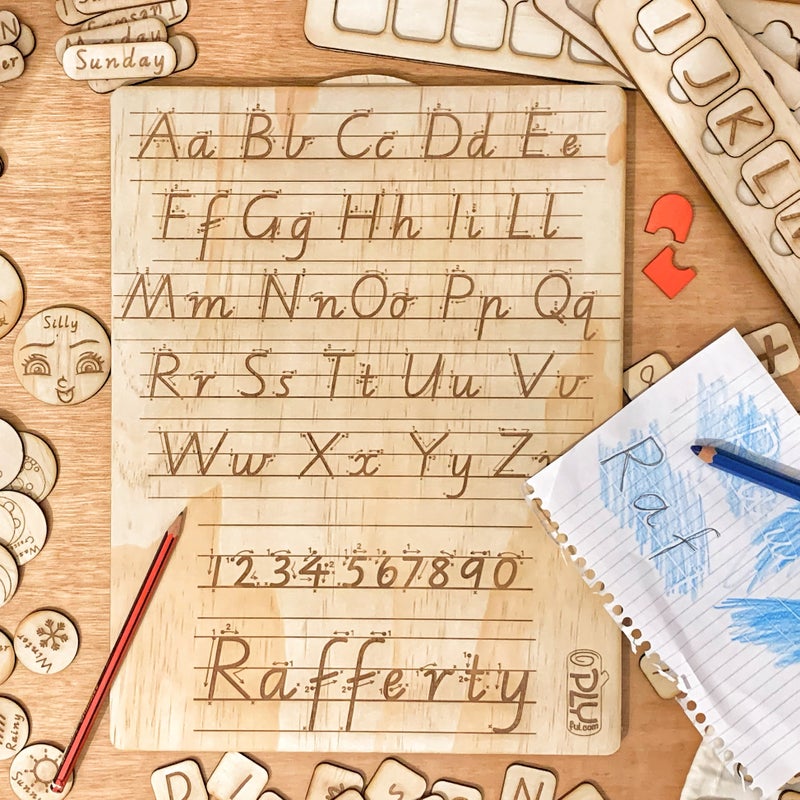 Sunday
Aa Bb Cc Dd Ee
Ff Gg Hh Ii Ll
Mm Nn Oo Pp Qq
Rr Ss Tt Uu Vv
Ww Xx Yy Zz
1234567890
Rafferty
PLY
ful.com
I
J
K
L
Silly
Winter
Rainy
Sunny
Raf
D
N